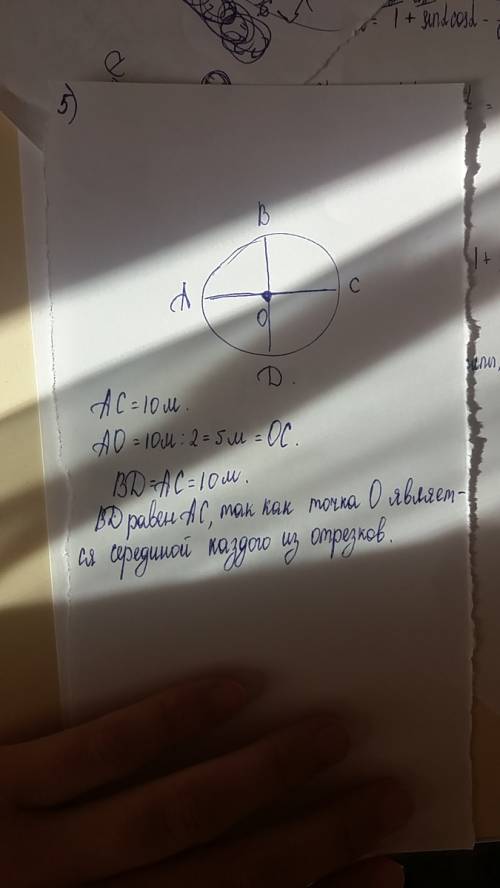 1 + sinα cosα -
5)
B
A
C
O
D.
1 +
AC = 10 м.
AO = 10 м : 2 = 5 м = OC.
BD = AC = 10 м.
BD равен AC, так как точка O являет-
ся серединой каздого из отрезков.